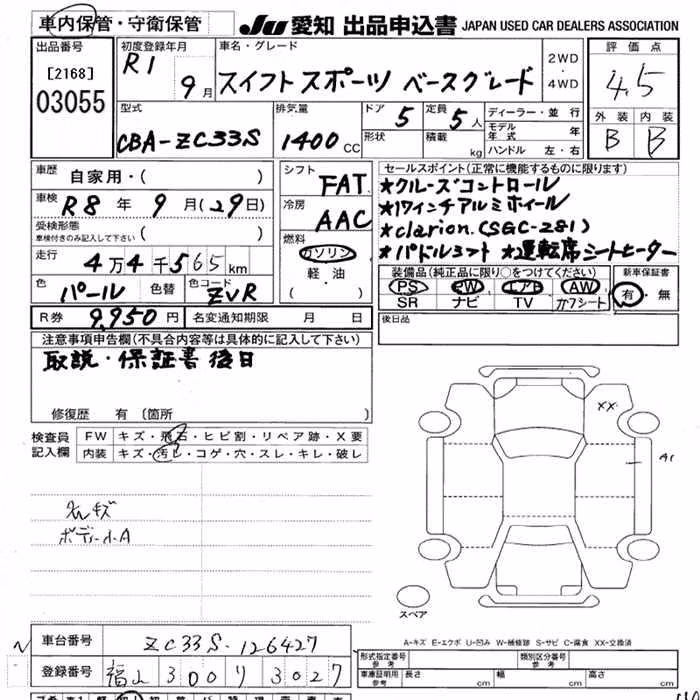 車内保管・守衛保管 JU 愛知 出品申込書 JAPAN USED CAR DEALERS ASSOCIATION
出品番号 [2168] 03055
初度登録年月 R1 9月
車名・グレード スイフトスポーツ ベースグレード
2WD・4WD
評価点 4.5
型式 CBA-ZC33S
排気量 1400 CC
ドア 5 定員 5人
形状 積載 kg
ディーラー・並行
モデル年式 年
ハンドル 左・右
外装 内装
B B
車歴 自家用・( )
車検 R8年 9月(29日)
受検形態
車検付きのみ記入して下さい ( )
走行 4万4千565km
色 パール 色替 色コード ZVR
シフト FAT
冷房 AAC
燃料 ガソリン
軽・油
( ・ )
セールスポイント(正常に機能するものに限ります)
★クルーズコントロール
★17インチアルミホイール
★clarion.(SGC-281)
★パドルシフト ★運転席シートヒーター
装備品(純正品に限り○をつけてください)
PS PW エアB AW
SR ナビ TV カワシート
新車保証書
有・無
R券 9,950円 名変通知期限 月 日
後日品
注意事項申告欄(不具合内容等は具体的に記入して下さい)
取説・保証書 後日
修復歴 有 (箇所 )
検査員記入欄
FW キズ・飛石・ヒビ割・リペア跡・X要
内装 キズ・汚レ・コゲ・穴・スレ・キレ・破レ
キズ
ボディー小A
XX
A1
スペア
A-キズ E-エクボ U-凹み W-補修跡 S-サビ C-腐食 XX-交換済
車台番号 ZC33S-126427
登録番号 福山 300 り 3027
形式指定番号 参考
類別区分番号 参考
車庫証明用 参考 長さ cm 幅 cm 高さ cm